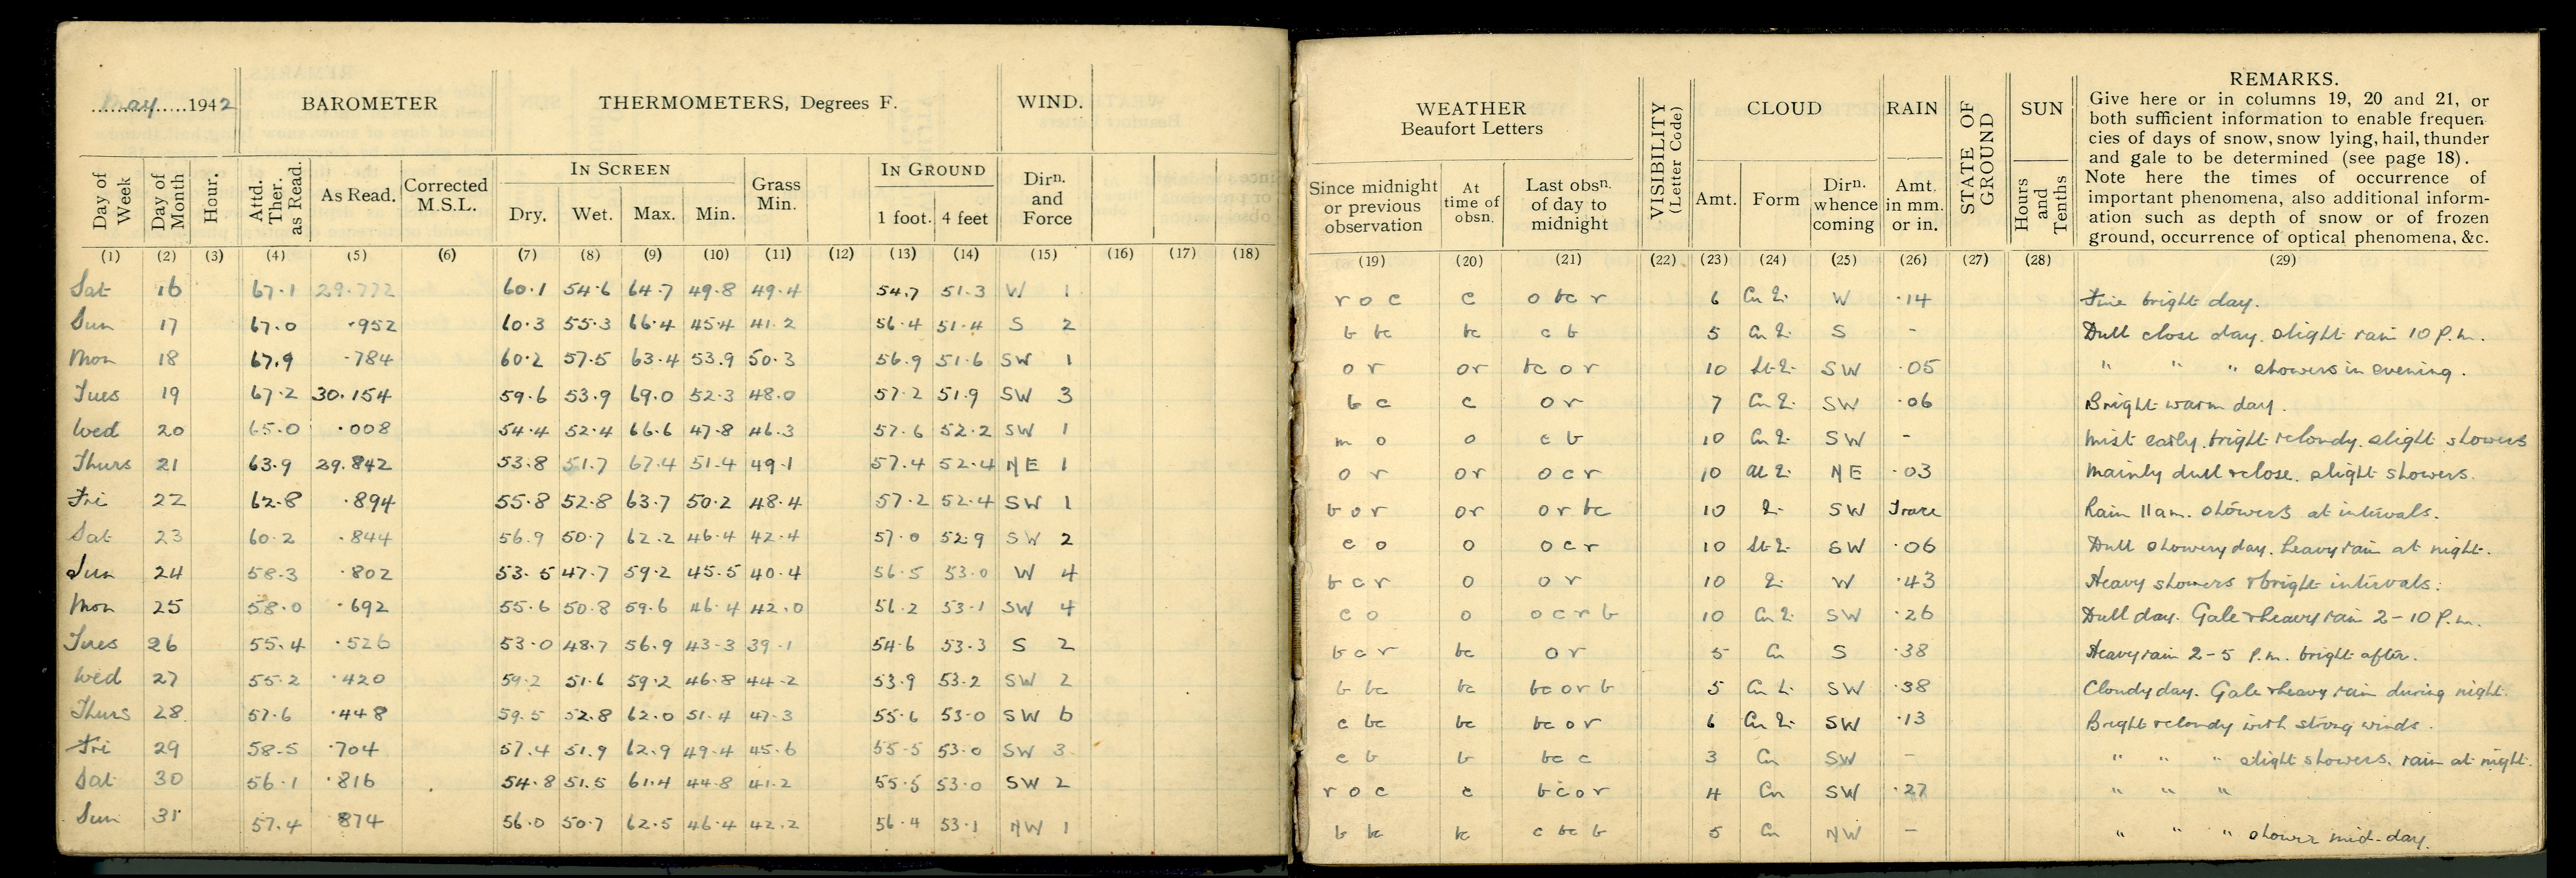 May 1942 BAROMETER THERMOMETERS, Degrees F. WIND.
WEATHER Beaufort Letters VISIBILITY (Letter Code) CLOUD RAIN STATE OF GROUND SUN REMARKS.
Give here or in columns 19, 20 and 21, or
both sufficient information to enable frequen
cies of days of snow, snow lying, hail, thunder
and gale to be determined (see page 18).
Note here the times of occurrence of
important phenomena, also additional inform-
ation such as depth of snow or of frozen
ground, occurrence of optical phenomena, &c.
IN SCREEN IN GROUND
Day of Week Day of Month Hour. Attd. Ther. as Read. As Read. Corrected M.S.L. Dry. Wet. Max. Min. Grass Min. 1 foot. 4 feet Dirn. and Force
Since midnight or previous observation At time of obsn. Last obsn. of day to midnight Amt. Form Dirn. whence coming Amt. in mm. or in. Hours and Tenths
(1) (2) (3) (4) (5) (6) (7) (8) (9) (10) (11) (12) (13) (14) (15) (16) (17) (18) (19) (20) (21) (22) (23) (24) (25) (26) (27) (28) (29)
Sat 16 67.1 29.772 60.1 54.6 64.7 49.8 49.4 54.7 51.3 W 1 r o c c o bc r 6 W .14 Fine bright day.
Sun 17 67.0 .952 60.3 55.3 66.4 45.4 41.2 56.4 51.4 S 2 b bc bc c b 5 S - Dull close day. slight rain 10 P.m.
Mon 18 67.9 .784 60.2 57.5 63.4 53.9 50.3 56.9 51.6 SW 1 o r or bc o r 10 SW .05 " " " showers in evening.
Tues 19 67.2 30.154 59.6 53.9 69.0 52.3 48.0 57.2 51.9 SW 3 b c c o r 7 SW .06 Bright warm day.
Wed 20 65.0 .008 54.4 52.4 66.6 47.8 46.3 57.6 52.2 SW 1 m o o c b 10 SW - Mist early. bright & cloudy. slight showers
Thurs 21 63.9 29.842 53.8 51.7 67.4 51.4 49.1 57.4 52.4 NE 1 o r or o c r 10 NE .03 Mainly dull & close. slight showers.
Fri 22 62.8 .894 55.8 52.8 63.7 50.2 48.4 57.2 52.4 SW 1 b o r or o r bc 10 SW Trace Rain 11am. showers at intervals.
Sat 23 60.2 .844 56.9 50.7 62.2 46.4 42.4 57.0 52.9 SW 2 c o o o c r 10 SW .06 Dull showery day. heavy rain at night.
Sun 24 58.3 .802 53.5 47.7 59.2 45.5 40.4 56.5 53.0 W 4 b c r o o r 10 W .43 Heavy showers & bright intervals.
Mon 25 58.0 .692 55.6 50.8 59.6 46.4 42.0 56.2 53.1 SW 4 c o o o c r b 10 SW .26 Dull day. Gale & heavy rain 2-10 P.m.
Tues 26 55.4 .526 53.0 48.7 56.9 43.3 39.1 54.6 53.3 S 2 b c r bc o r 5 Cu S .38 Heavy rain 2-5 P.m. bright after.
Wed 27 55.2 .420 59.2 51.6 59.2 46.8 44.2 53.9 53.2 SW 2 b bc bc bc o r b 5 SW .38 Cloudy day. Gale & heavy rain during night.
Thurs 28 57.6 .448 59.5 52.8 62.0 51.4 47.3 55.6 53.0 SW 6 c bc bc bc o r 6 SW .13 Bright & cloudy with strong winds.
Fri 29 58.5 .704 57.4 51.9 62.9 49.4 45.6 55.5 53.0 SW 3 c b b bc c 3 Cu SW - " " " slight showers. rain at night.
Sat 30 56.1 .816 54.8 51.5 61.4 44.8 41.2 55.5 53.0 SW 2 r o c c b c o r 4 Cu SW .27 " " "
Sun 31 57.4 874 56.0 50.7 62.5 46.4 42.2 56.4 53.1 NW 1 b bc bc c bc b 5 Cu NW - " " " shower mid-day.